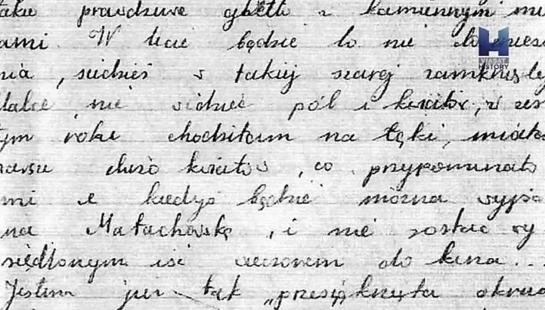 takie prawdziwe ghetto z kamiennym mu
ami. W lecie będzie to nie do
nia, siedzieć w takiej szarej zamkniętej
latce nie widzieć pól i kwiatów, w ze
tym roku chodziłam na łąki, miała
zawsze dużo kwiatów, co przypominało
mi że kiedyś będzie można wyjś
na Małachowską, i nie zostać wy
siedlonym iść wieczorem do kina...
Jestem już tak „przesiąknięta okru
H
HISTORY